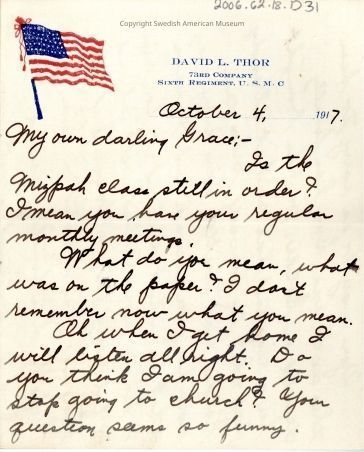 2006.62.18.D31
Copyright Swedish American Museum
DAVID L. THOR
73RD COMPANY
SIXTH REGIMENT, U. S. M. C
October 4, 1917.
My own darling Grace;-
Is the
Mizpah class still in order?
I mean you have your regular
monthly meetings.
What do you mean, what
was on the paper? I don't
remember now what you mean.
Oh when I get home I
will listen all right. Do
you think I am going to
stop going to church? Your
question seems so funny.